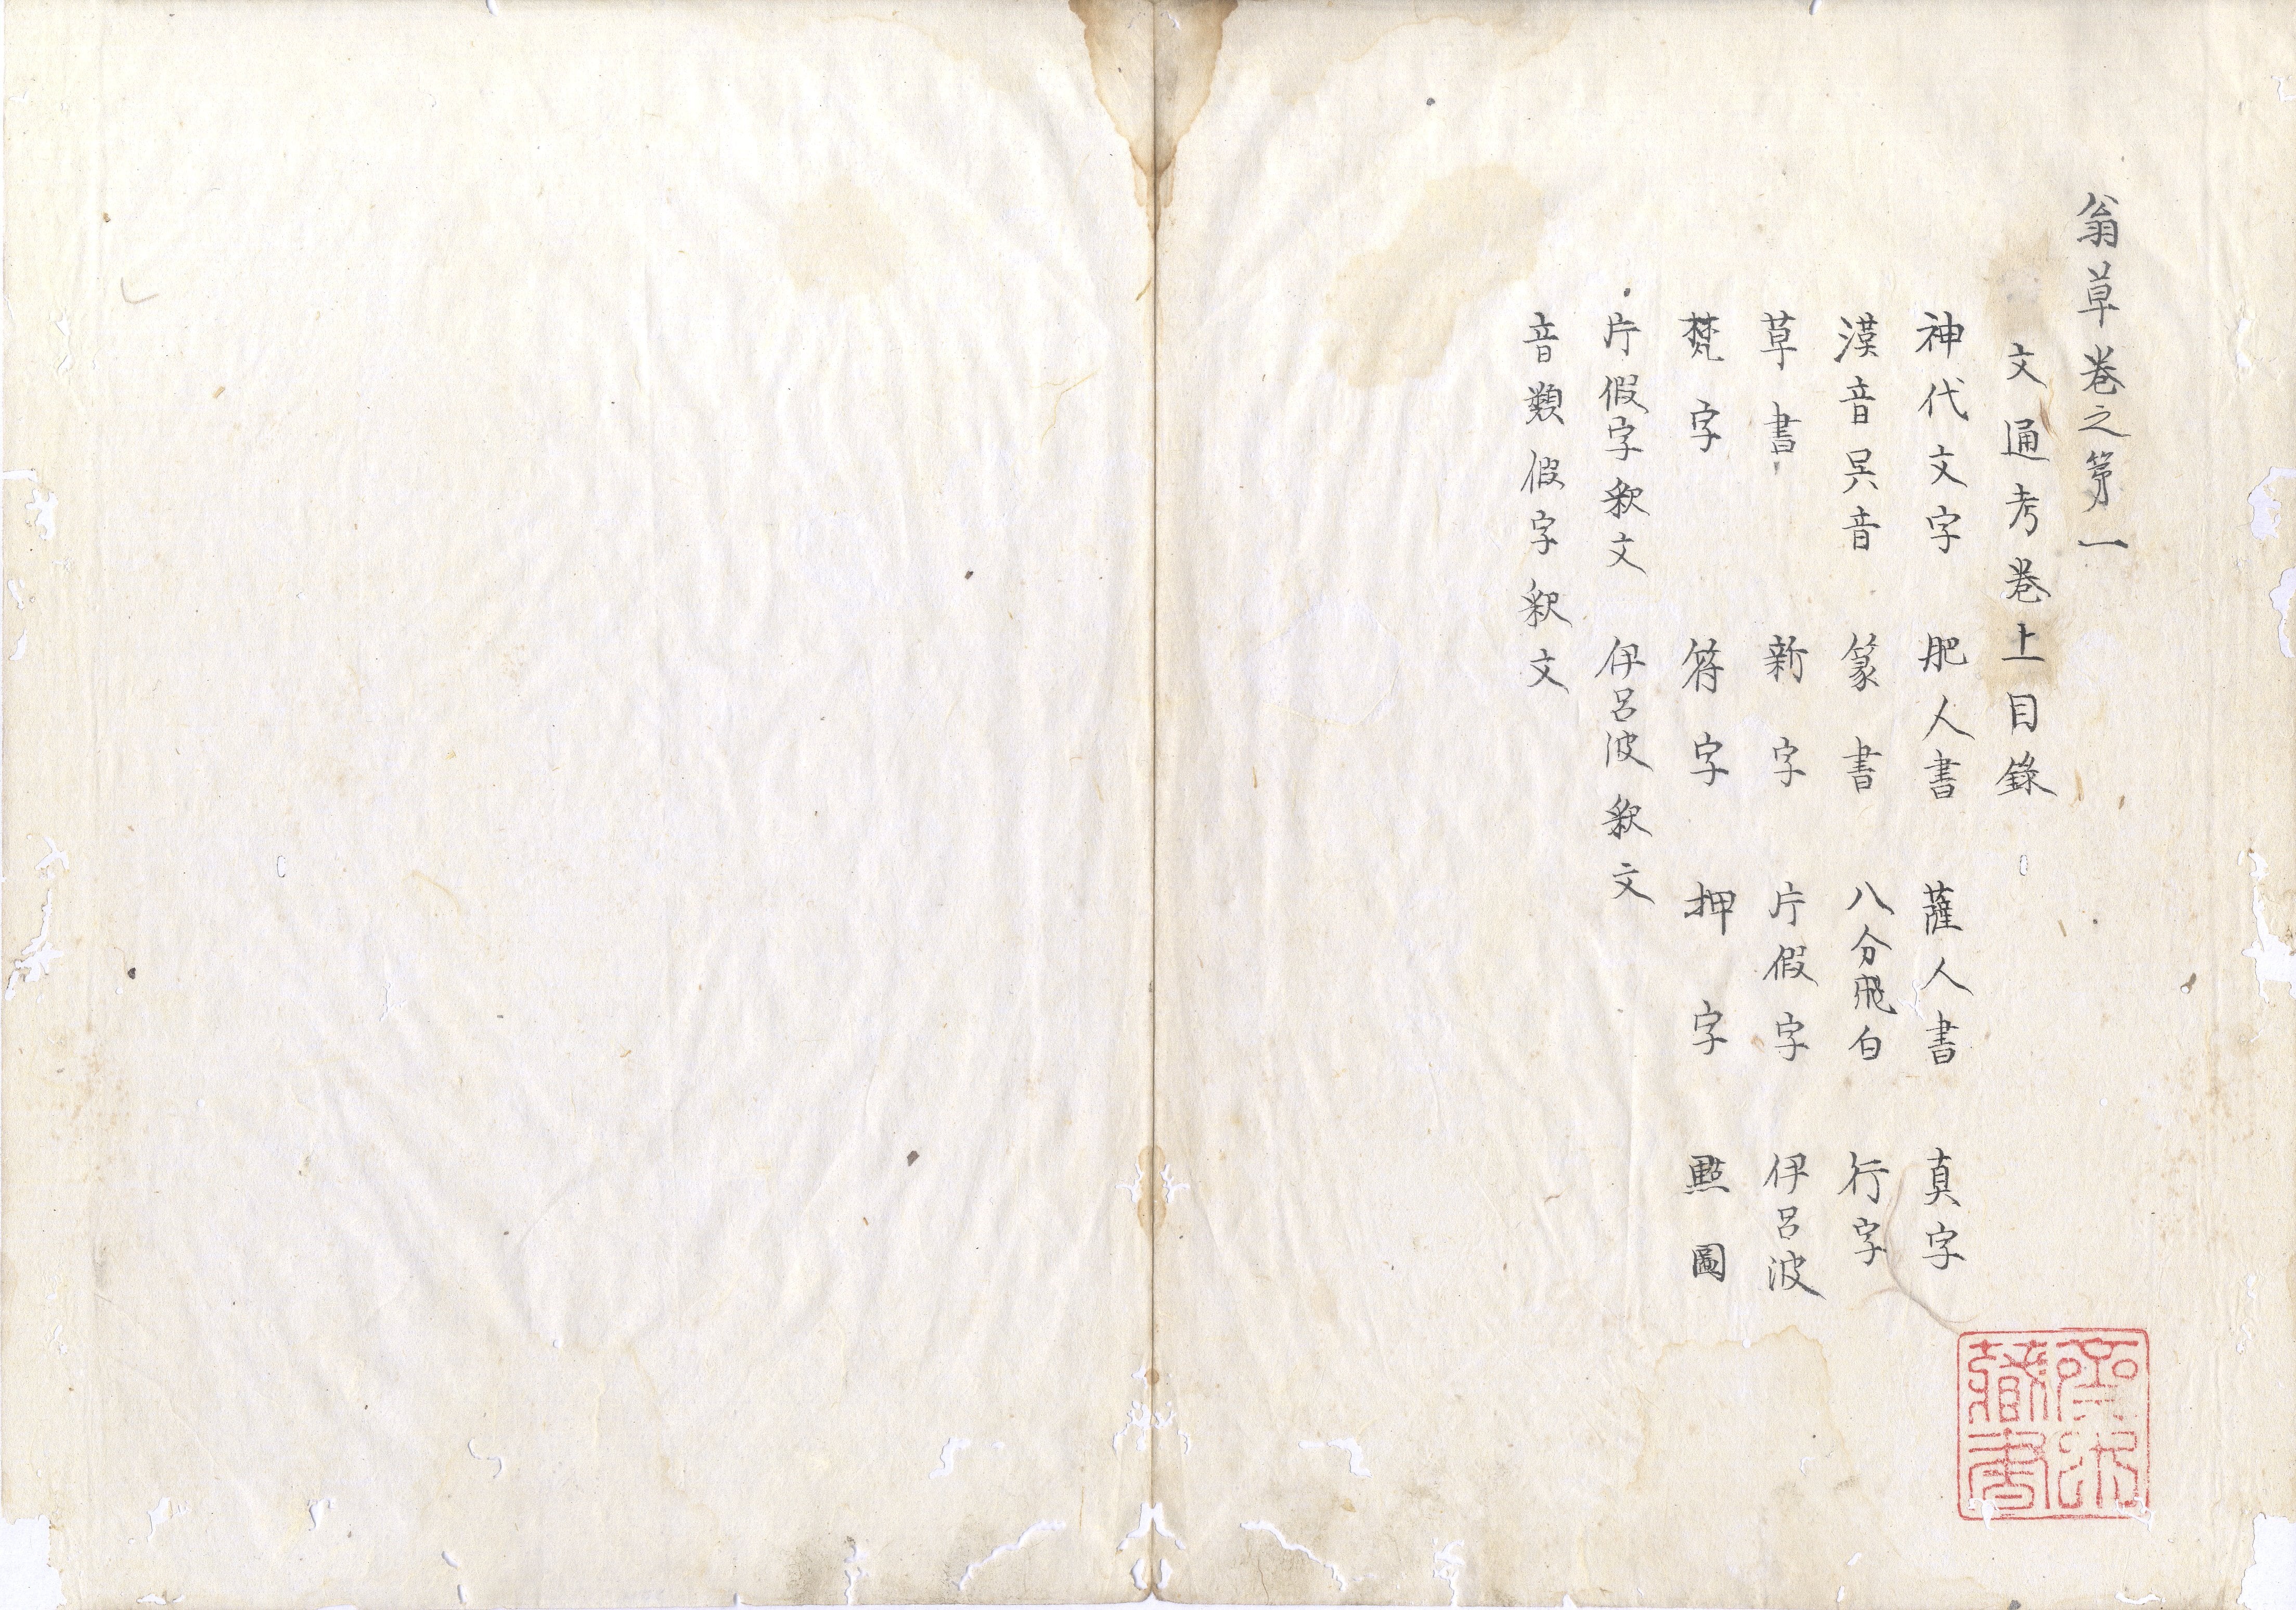 翁草巻之第一
文通考巻上目録
神代文字 肥人書 薩人書 真字
漢音呉音 篆書 八分飛白 行字
草書 新字 片假字 伊呂波
梵字 符字 押字 㸃圖
片假字釈文 伊呂波釈文
音類假字釈文
藏書